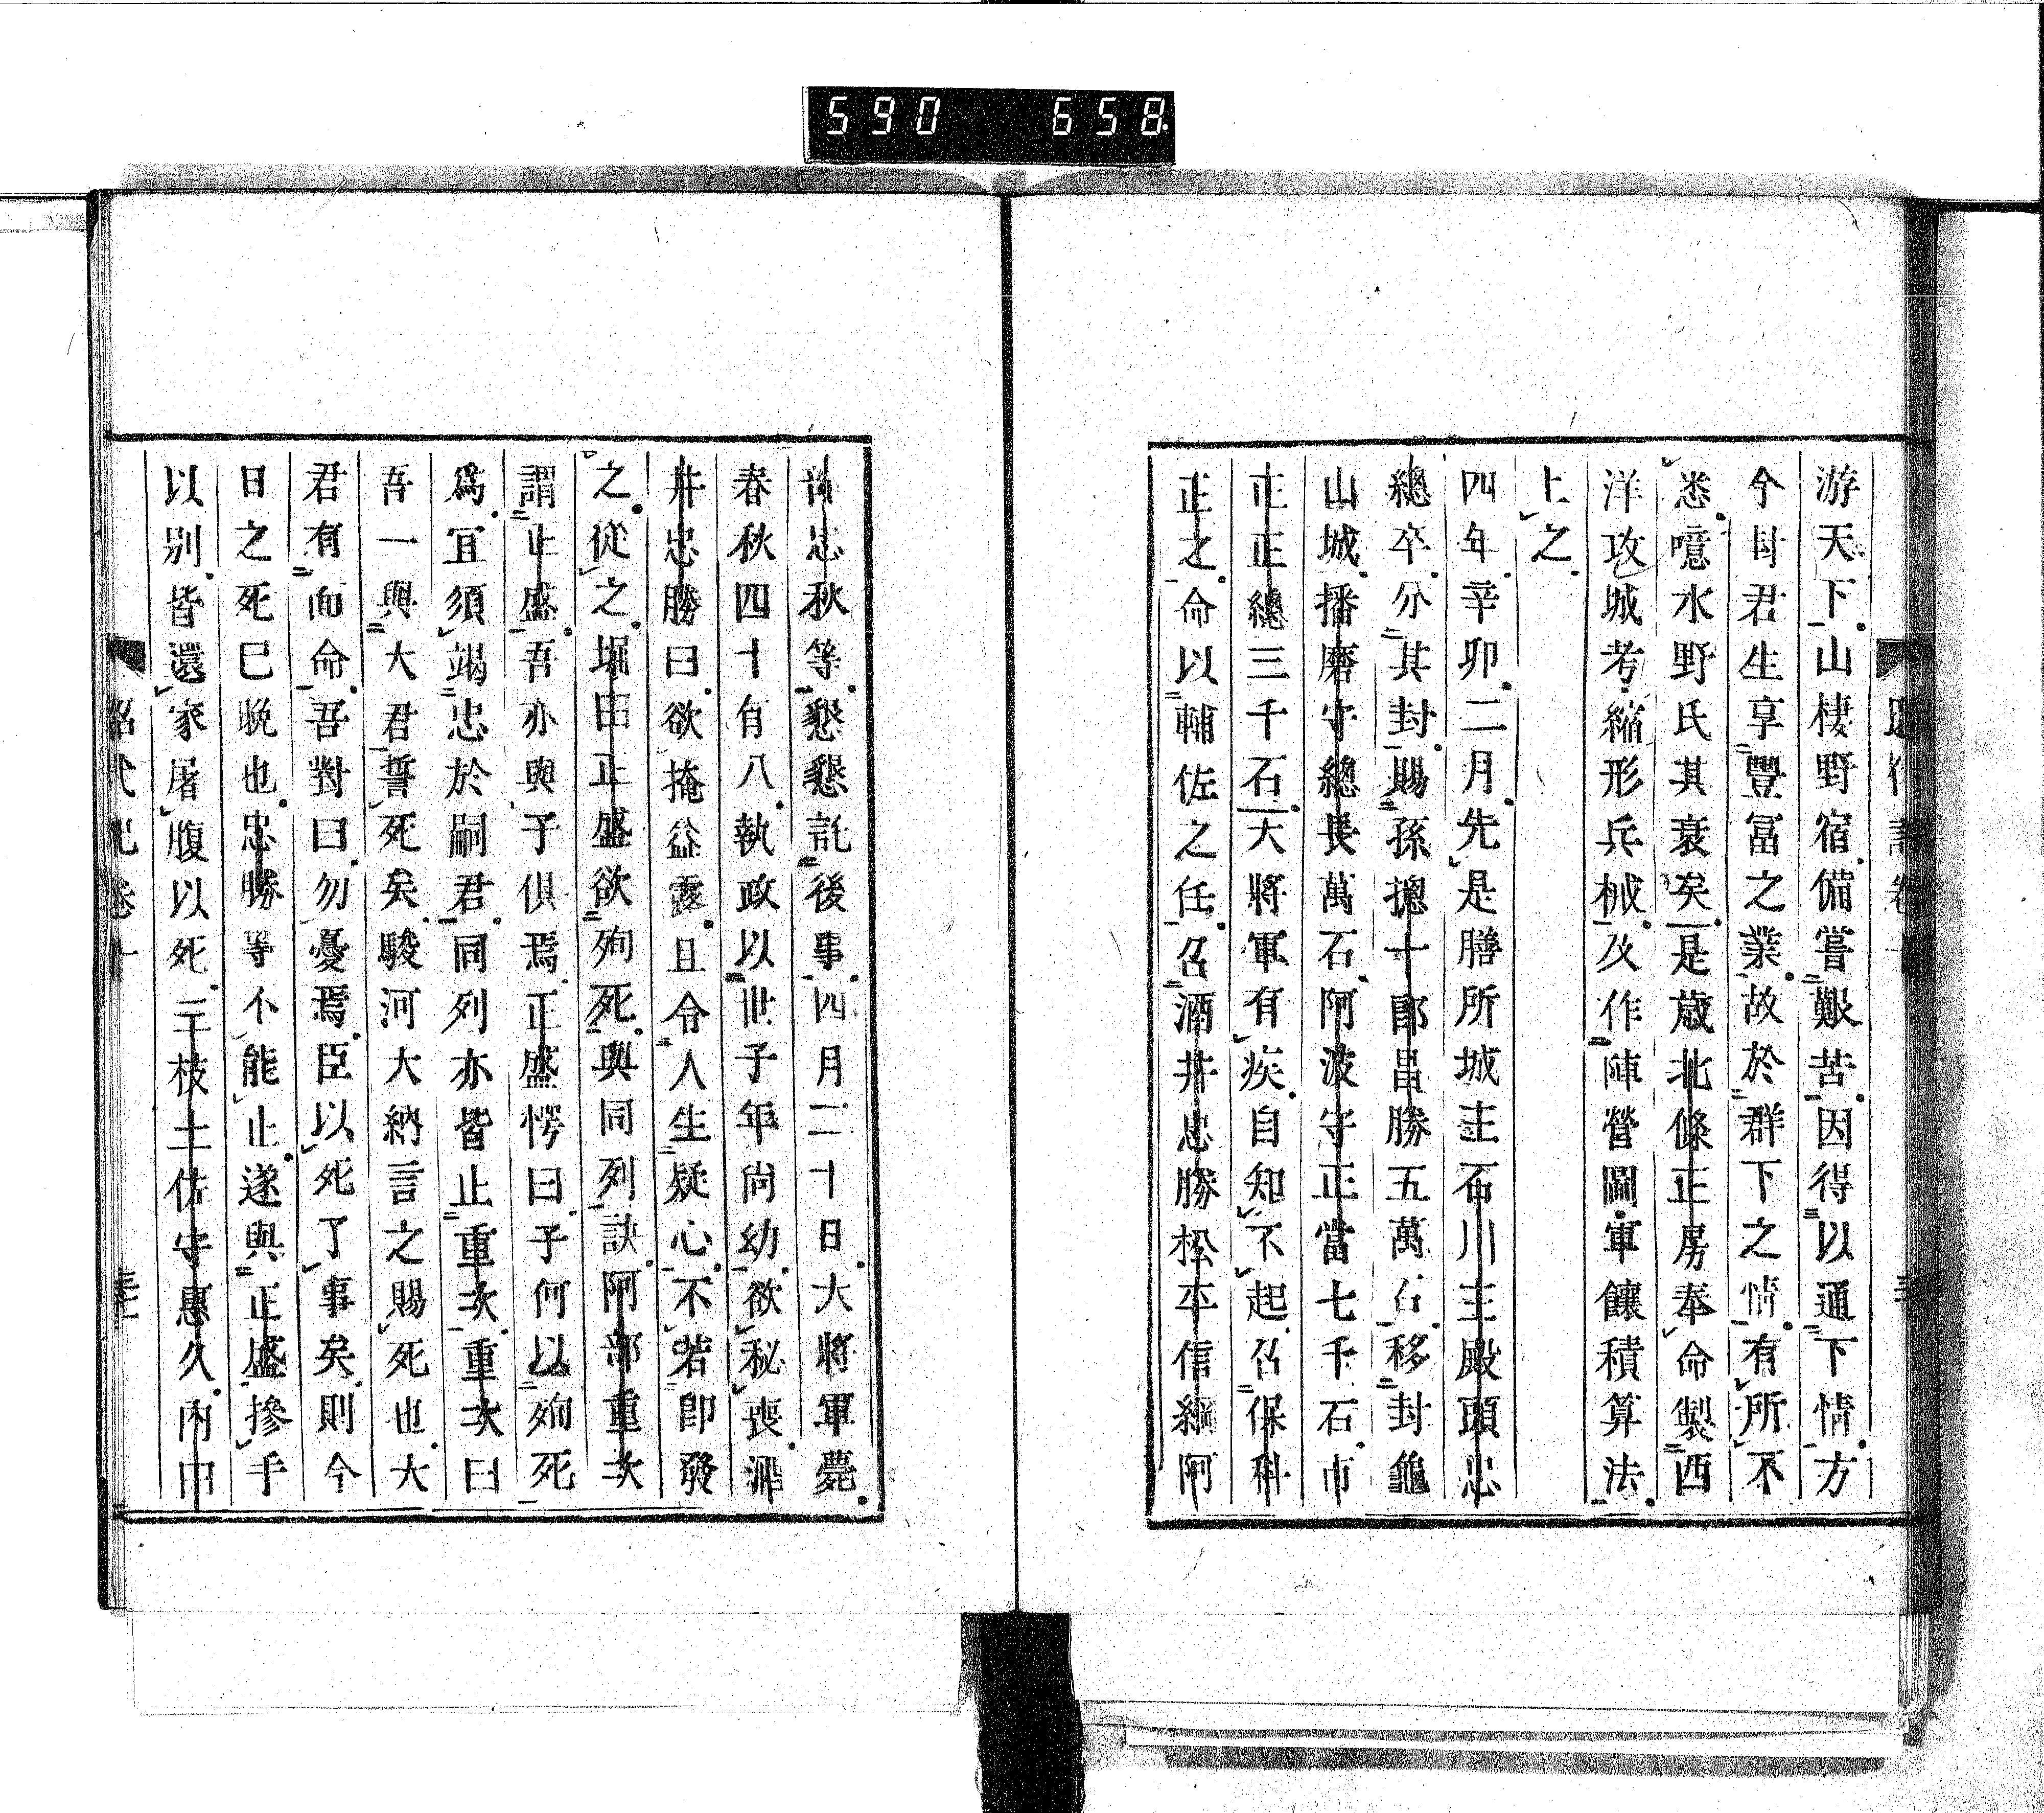 590 658
游天下山棲野宿備嘗艱苦因得以通下情方
今封君生享豐冨之業故於群下之情有所不
悉噫水野氏其衰矣是歳北條正房奉命製西
洋攻城考縮形兵械及作陣營圖軍餼積算法
上之
四年辛卯二月先是膳所城主石川主殿頭忠
總卒分其封賜孫摠十郎昌勝五萬石移封龜
山城播磨守總長萬石阿波守正當七千石市
正正總三千石大將軍有疾自知不起召保科
正之命以輔佐之任召酒井忠勝松平信綱阿
部忠秋等懇懇託後事四月二十日大將軍薨
春秋四十有八執政以世子年尚幼欲秘喪酒
井忠勝曰欲掩益露且令人生疑心不若即發
之從之堀田正盛欲殉死與同列訣阿部重次
謂正盛吾亦與子倶焉正盛愕曰子何以殉死
爲宜須竭忠於嗣君同列亦皆止重次重次曰
吾一與大君誓死矣駿河大納言之賜死也大
君有面命吾對曰勿憂焉臣以死了事矣則今
日之死已晩也忠勝等不能止遂與正盛摻手
以别皆還家屠腹以死三枝土佐守惠久内田
昭代記卷十